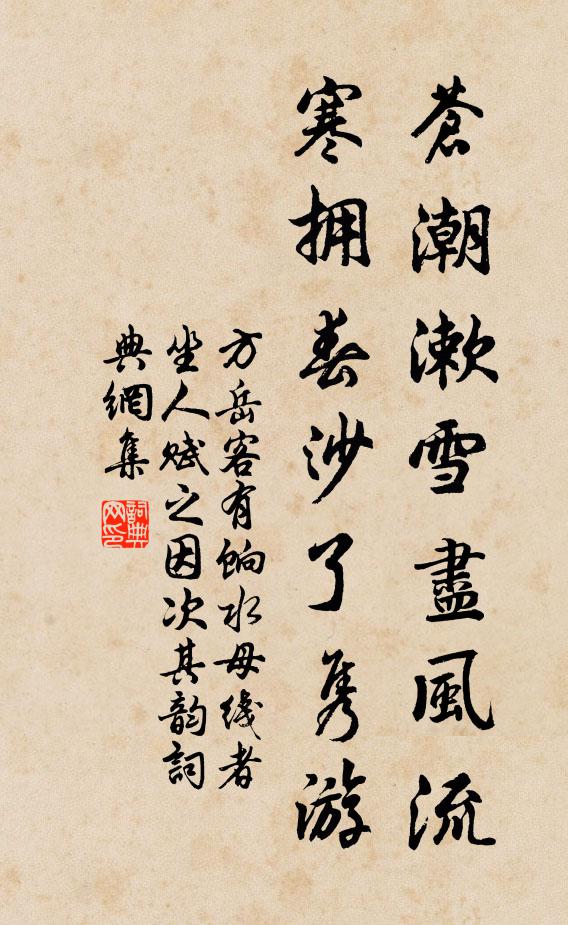 蒼潮漱雪盡風流
寒拥春沙了隽游
方岳客有餉水母线者
坐人赋之因次其韵詞
典網集
詞典网印